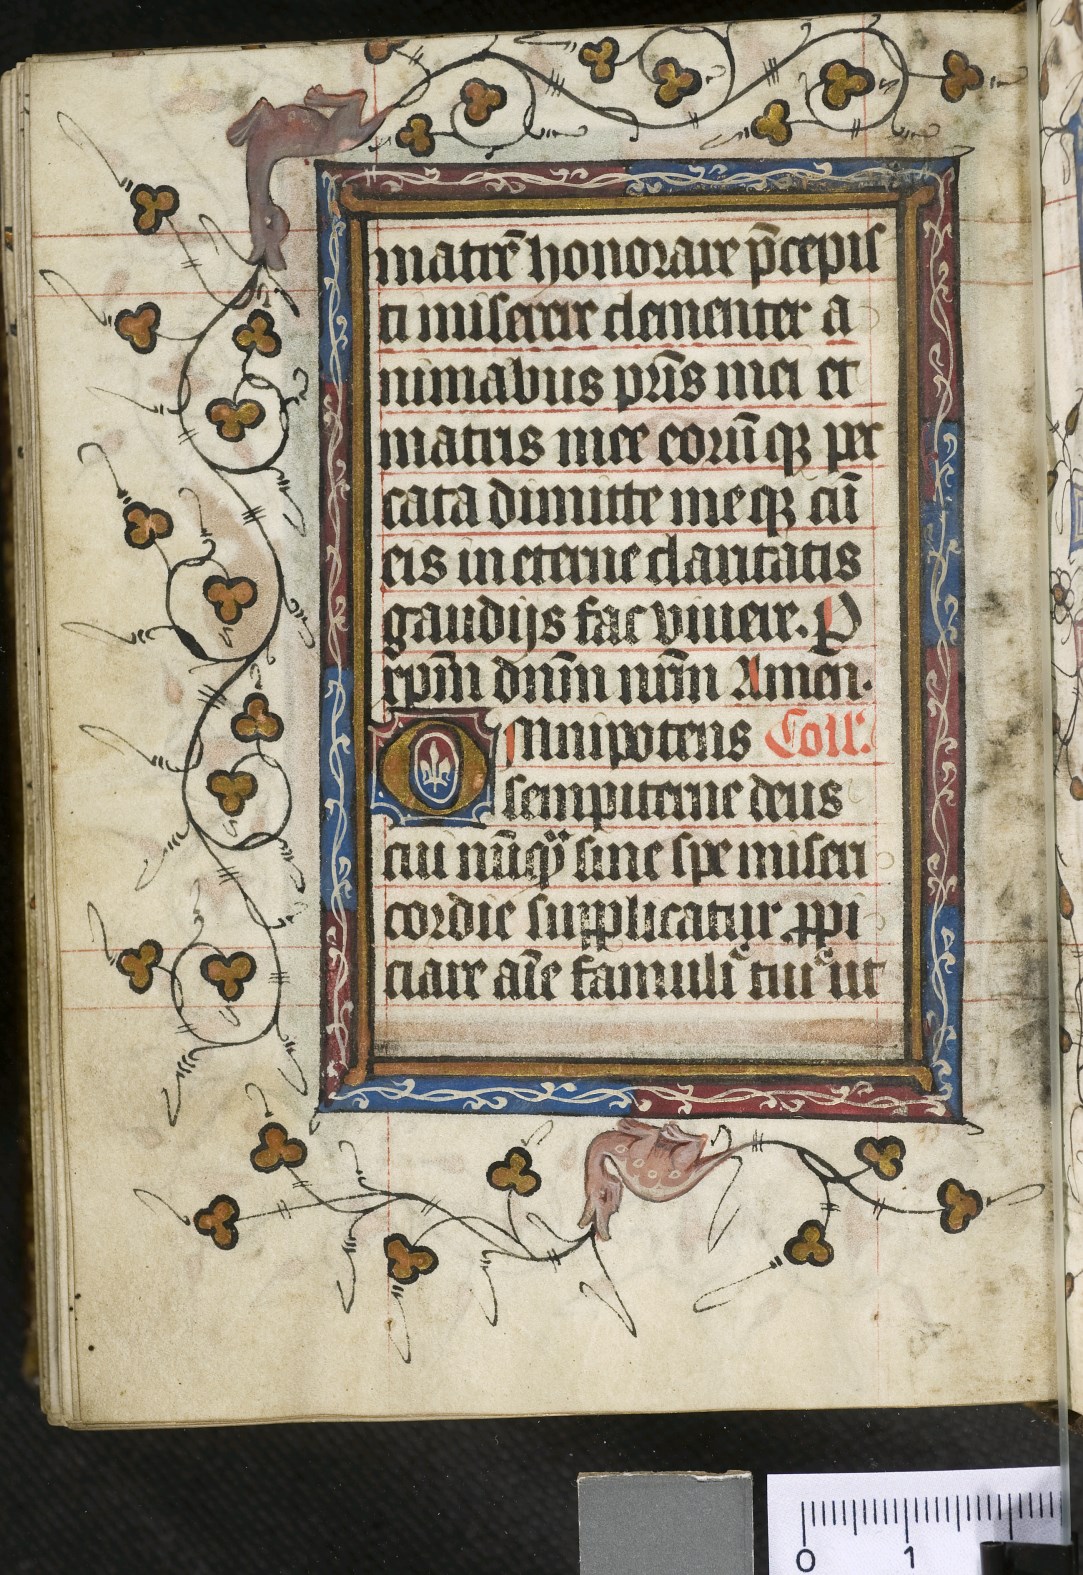 matrē honorare p̄cepis
ti miserere clementer a
nimabus pr̄is mei et
matris mee eorūqꝫ pec
cata dimitte meqꝫ cū
eis in eterne claritatis
gaudijs fac viuere. P
xpm̄ dnm̄ nrm̄ Amen.
Omnipotens Coll'.
sempiterne deus
cui nūqᷓ sine spe miseri
cordie supplicatur ꝓpi
ciare aīe famuli tui ut
0 1